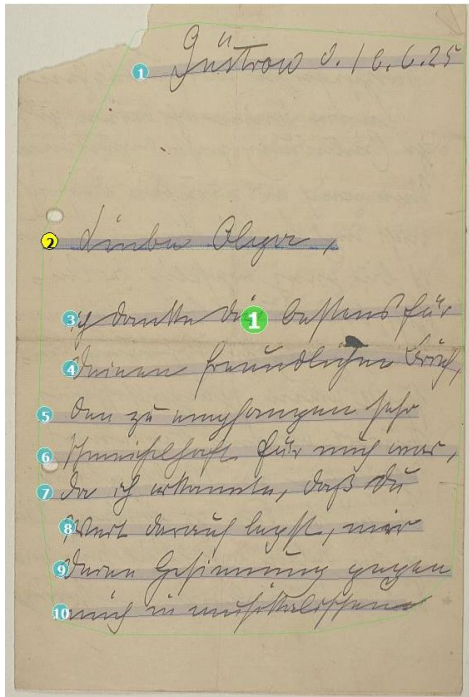 Güstrow d. 16.6.25
Lieber Olger,
ich danke dir bestens für
deinen freundlichen Brief,
den zu empfangen sehr
schmeichelhaft für mich war,
da ich erkannte, daß du
Wert darauf legst, mir
deine Gesinnung gegen
mich in musikalischen